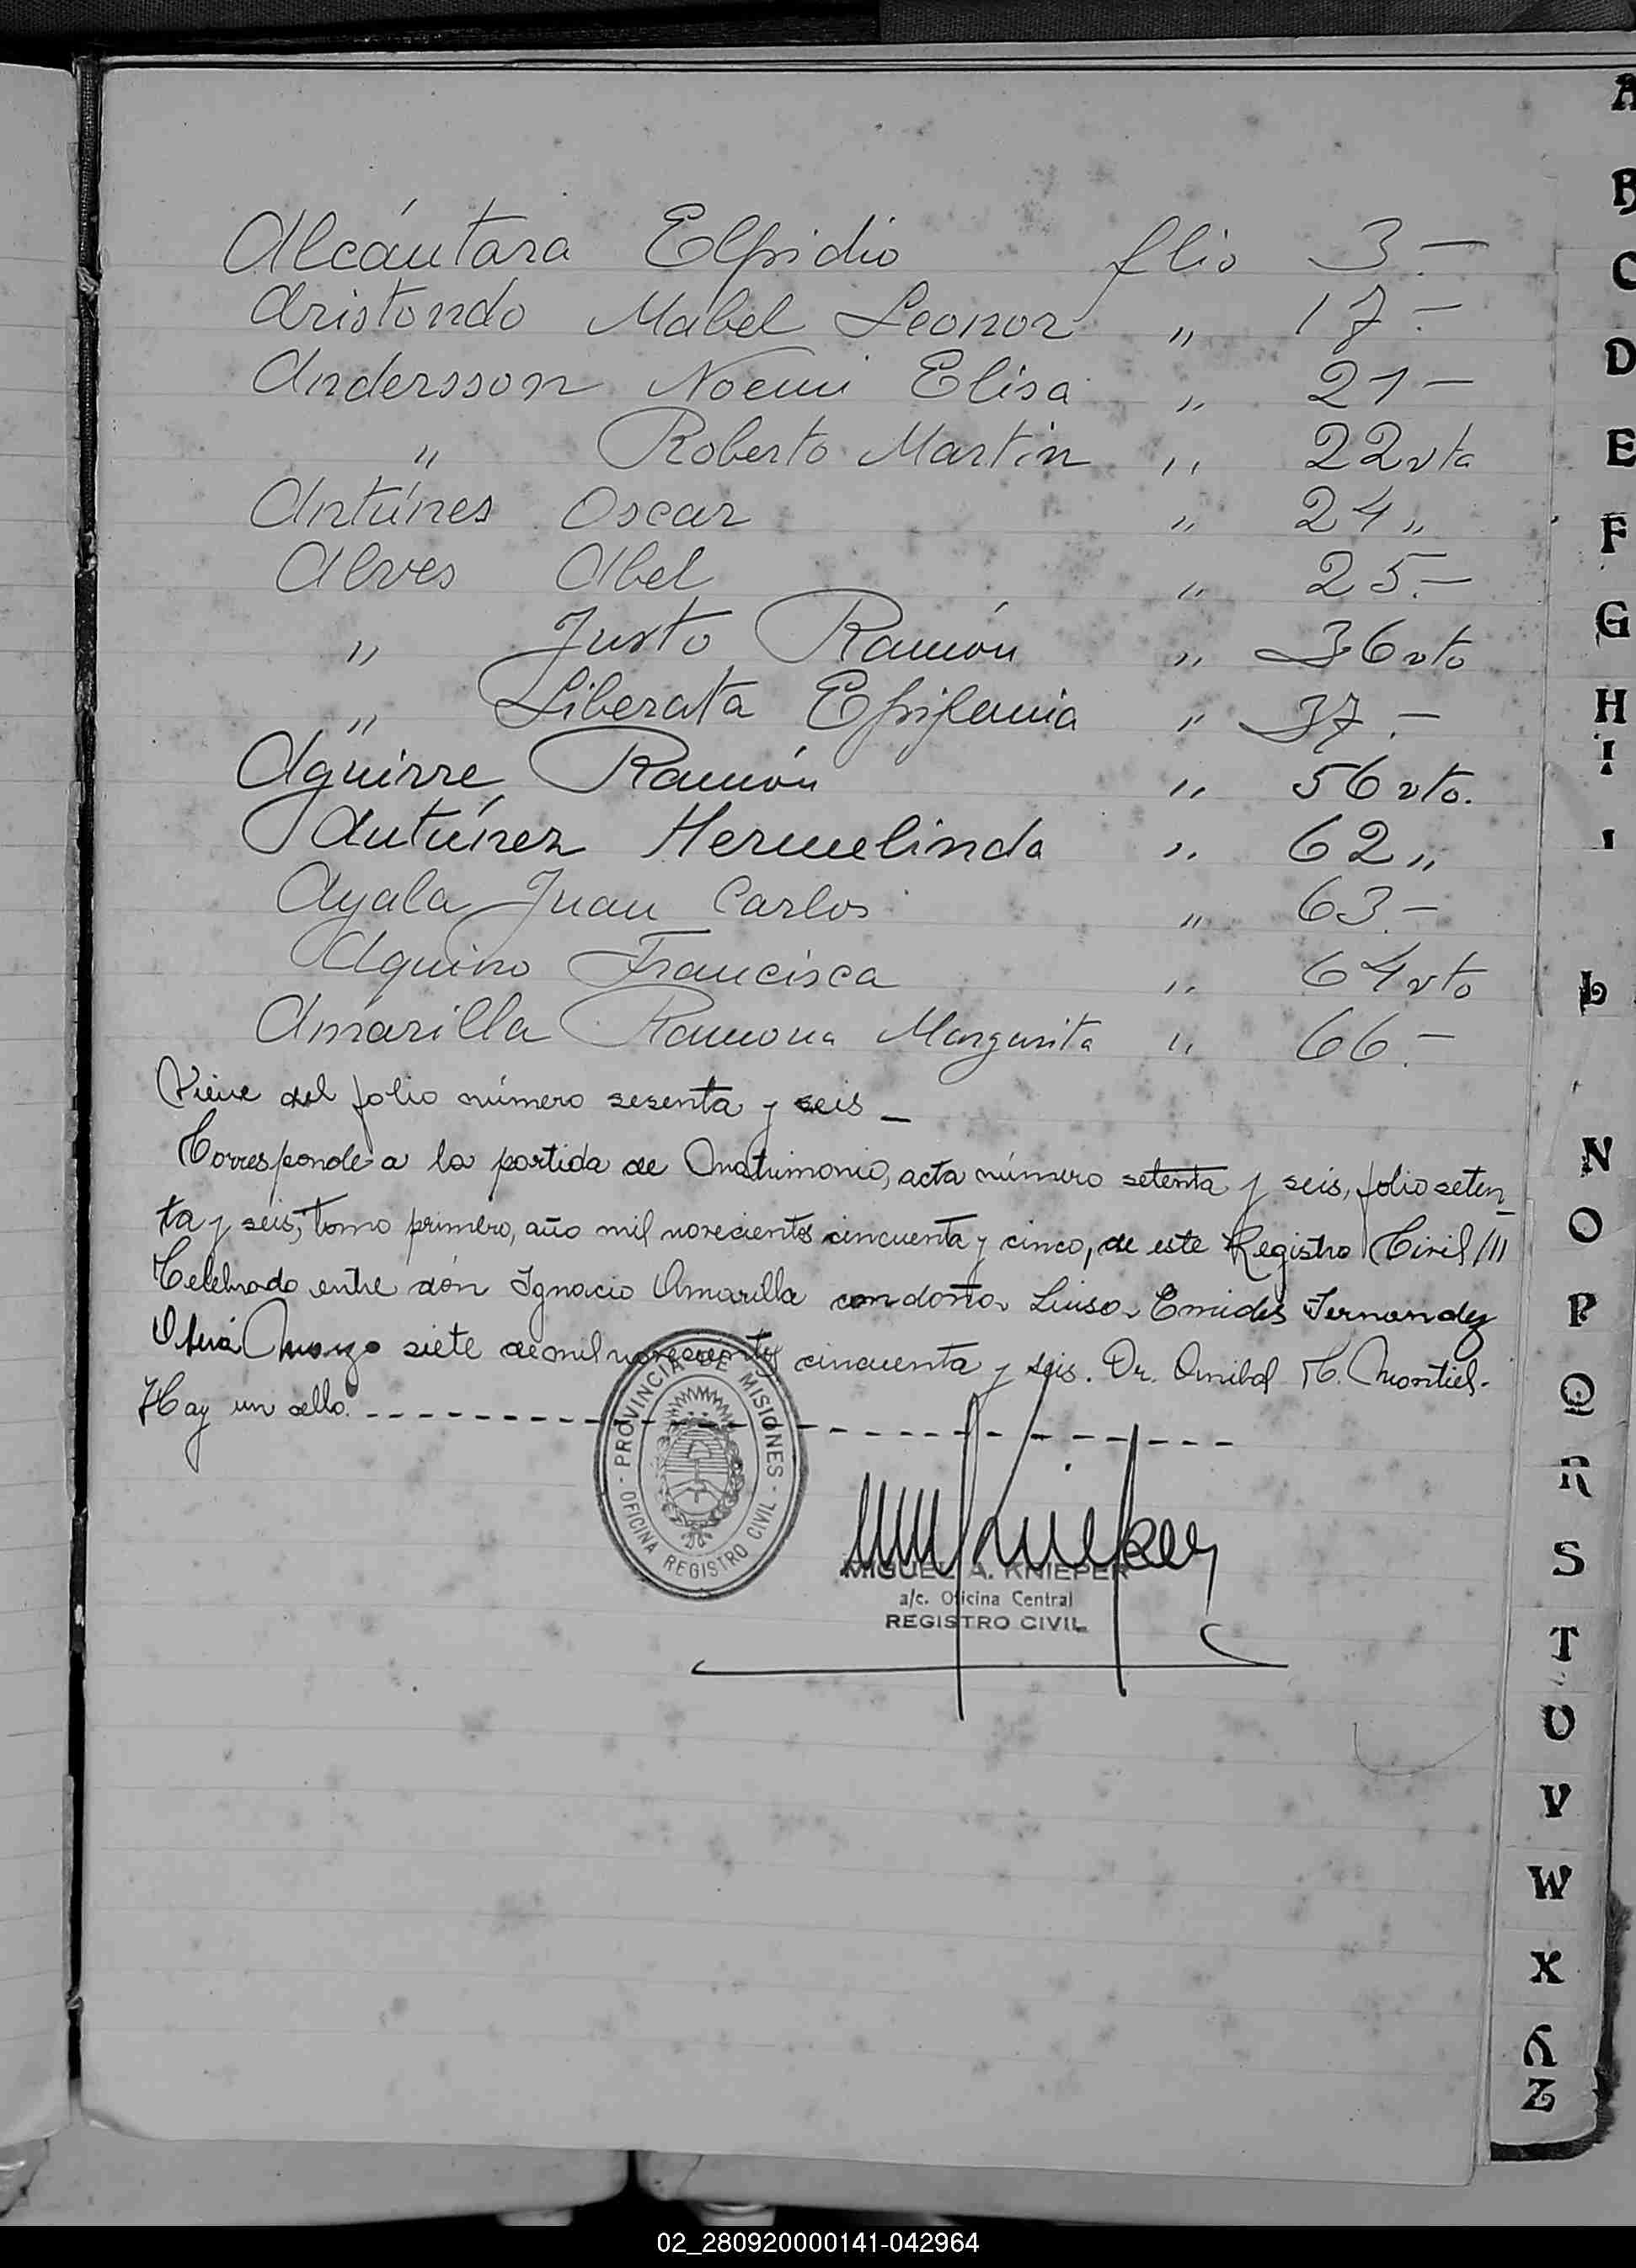 Alcántara Elpidio flio 3.—
Aristondo Mabel Leonor " 17.—
Andersson Noemi Elisa " 21—
" Roberto Martin " 22vta
Antúnes Oscar " 24 "
Alves Abel " 25.—
" Justo Ramón " 36vto
" Liberata Epifania " 37.—
Aguirre Ramón " 56 vto.
Antúnez Hermelinda " 62 "
Ayala Juan Carlos " 63.—
Aquino Francisca " 64vto
Amarilla Ramona Margarita " 66.—
Viene del folio número sesenta y seis —
Corresponde a la partida de Matrimonio, acta número setenta y seis, folio seten_
ta y seis, tomo primero, año mil novecientos cincuenta y cinco, de este Registro Civil///
Celebrado entre don Ignacio Amarilla con doña Luisa Emides Fernandez
Oberá Marzo siete de mil novecientos cincuenta y seis. Dr. Anibal M. Montiel.
Hay un sello.
- PROVINCIA DE MISIONES -
OFICINA REGISTRO CIVIL
MIGUEL A. KNIEPER
a/c. Oficina Central
REGISTRO CIVIL
A
B
C
D
E
F
G
H
I
L
N
O
P
Q
R
S
T
U
V
W
X
Y
Z
02_280920000141-042964